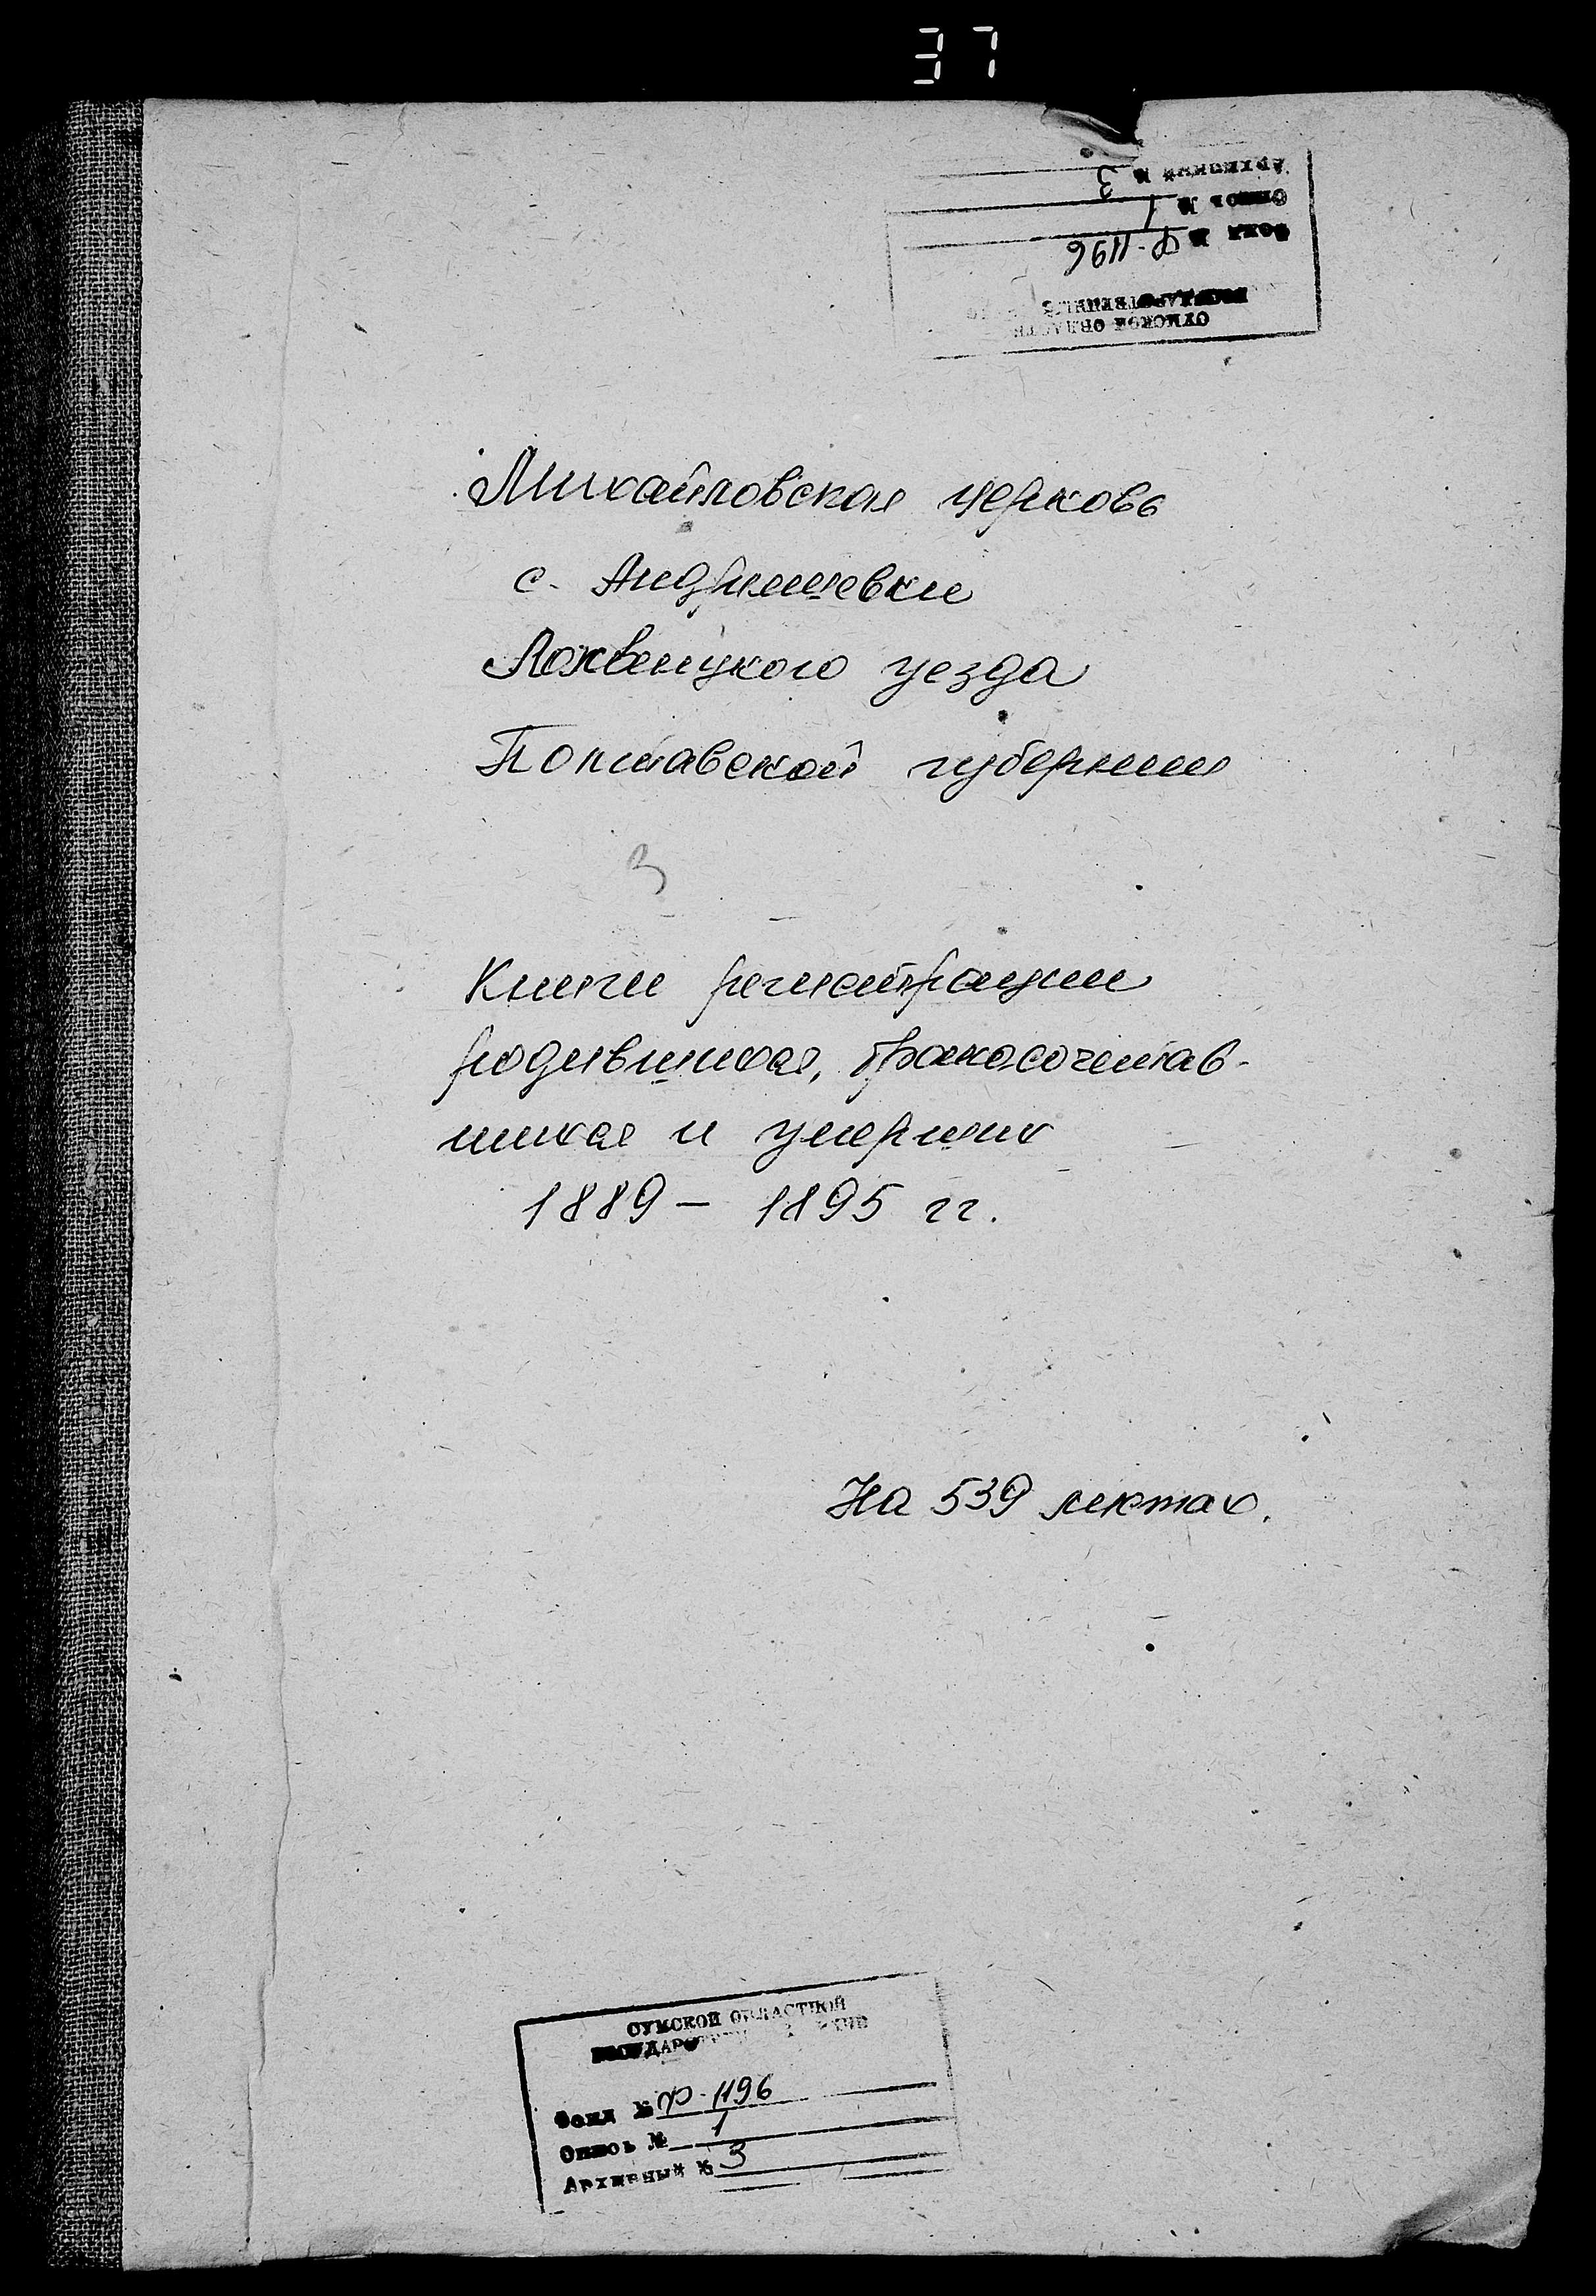 37
Архивный № 3
Опись № 1
Фонд № Ф-1196
СУМСКОЙ ОБЛАСТНОЙ
ГОСУДАРСТВЕННЫЙ
Михайловская церковь
с. Андрияшевки
Лохвицкого уезда
Полтавской губернии
3
Книги регистрации
родившихся, бракосочетав-
шихся и умерших
1889 – 1895 гг.
На 539 листах.
СУМСКОЙ ОБЛАСТНОЙ
ГОСУДАРСТВЕННЫЙ АРХИВ
Фонд № Ф-1196
Опись № 1
Архивный № 3